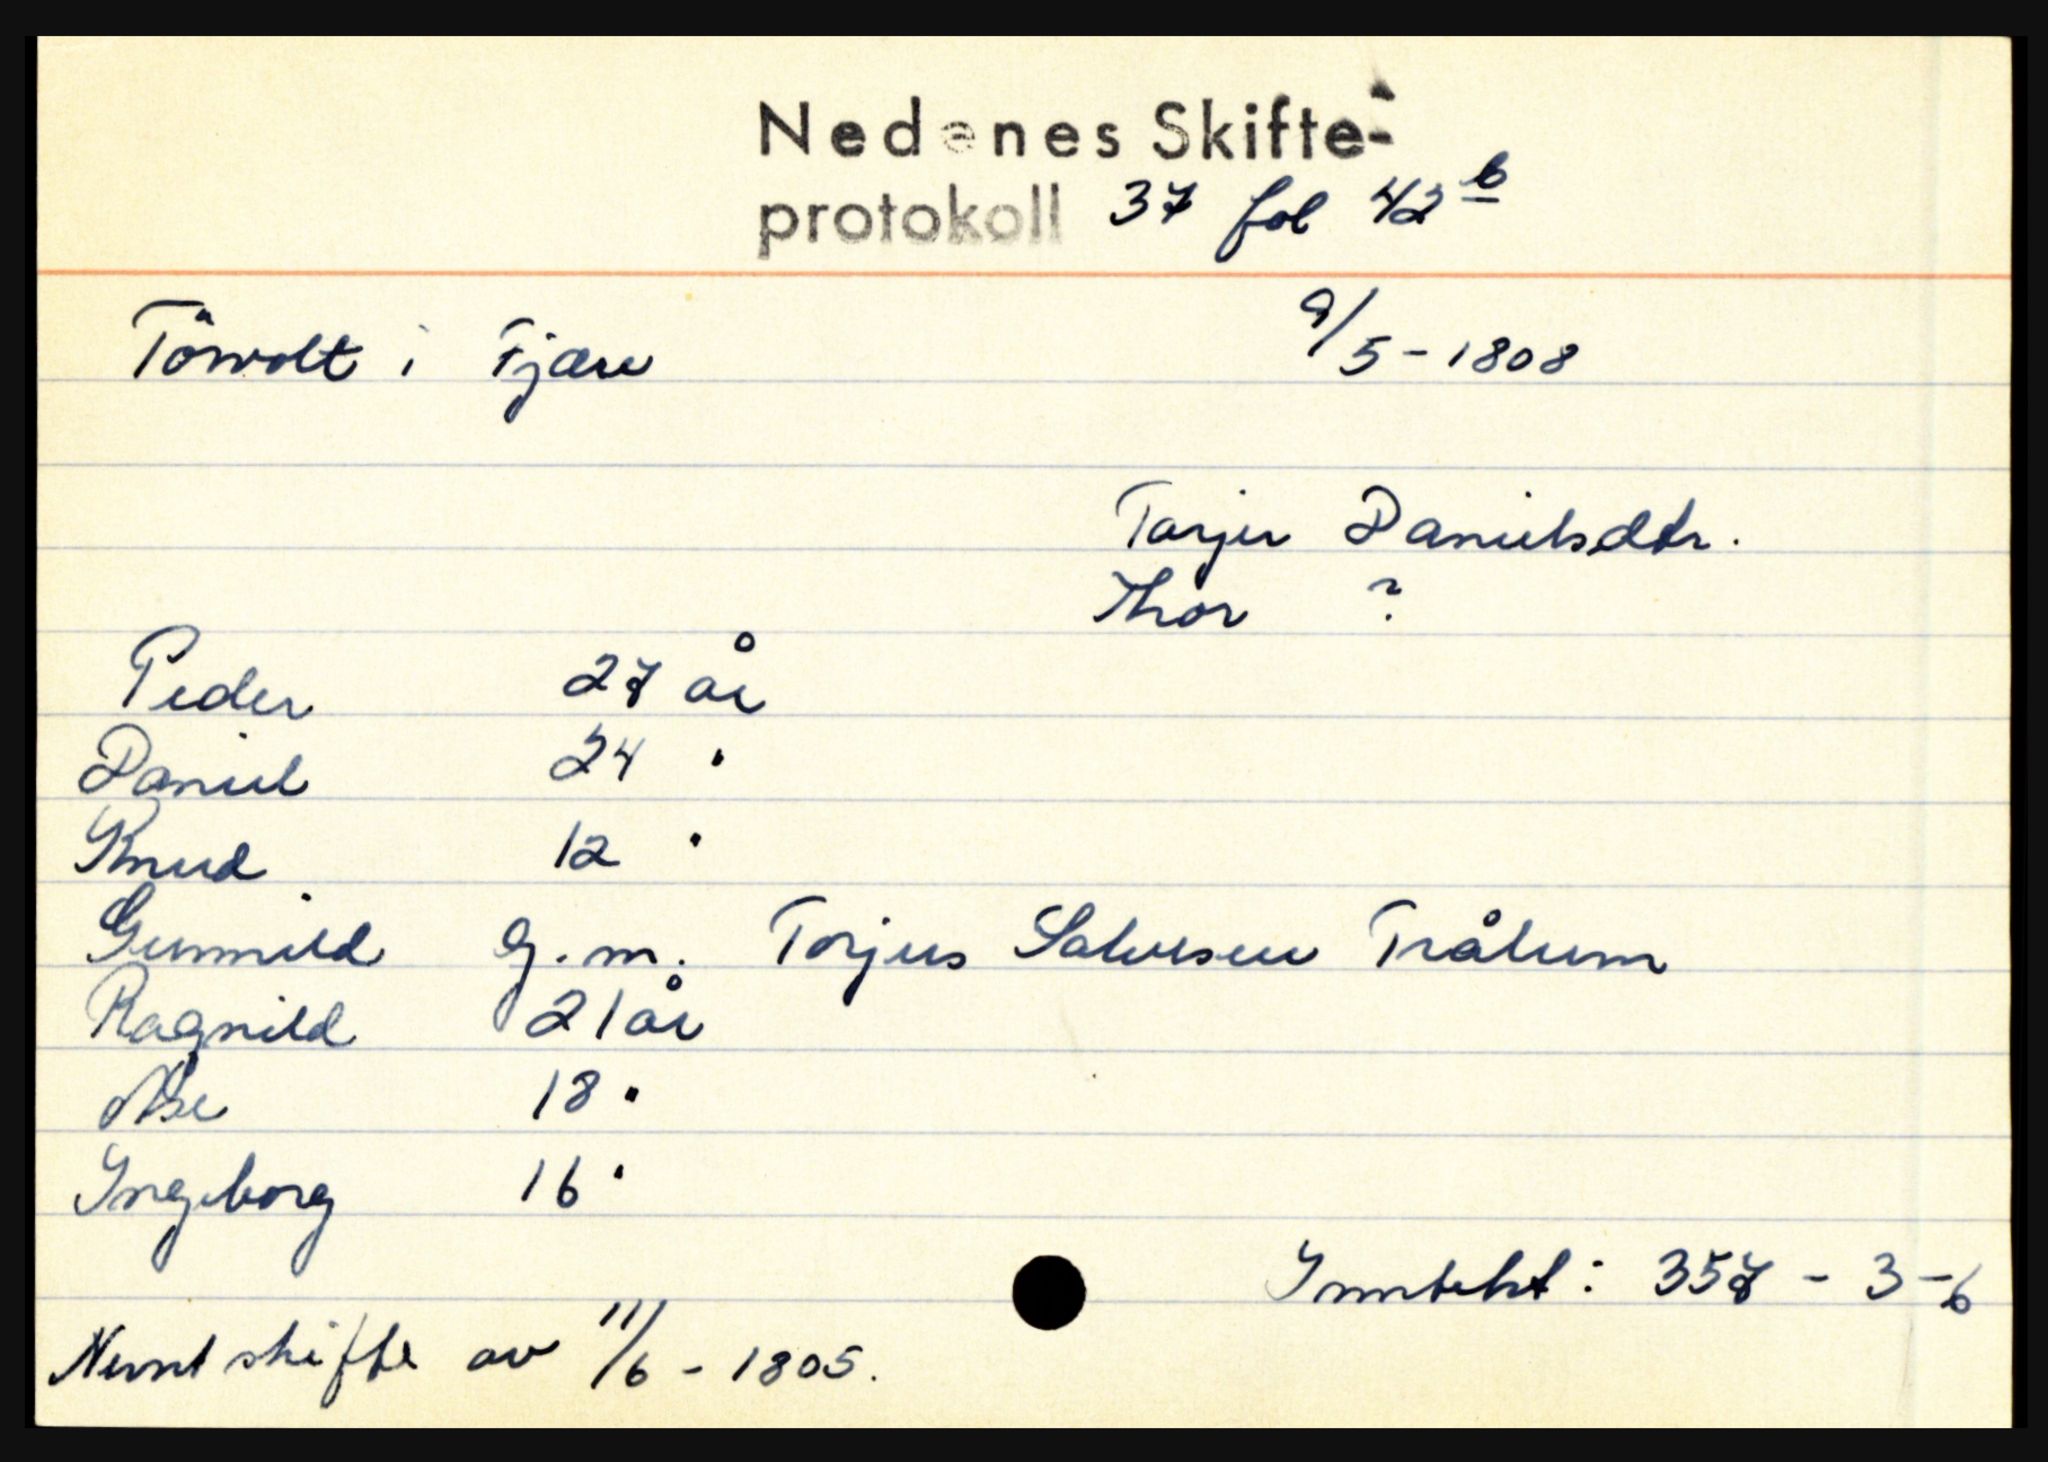 Nedenes Skifte-
protokoll 37 fol 42 b
Tørvolt i Fjære 9/5-1808
Tarjer Danielsdtr.
Thor ?
Peder 27 år
Daniel 24 "
Knud 12 "
Gunnild g.m. Torjus Salvesen Trålum
Ragnild 21 år
Åse 18 "
Ingeborg 16 "
Inntekt: 357 - 3 - 6
Nevnt skifte av 11/6 - 1805.